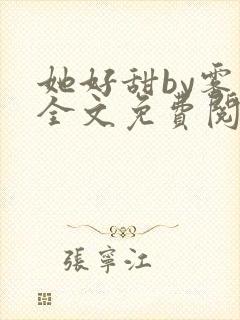 她好甜by雾
全文免費閱
張寧江